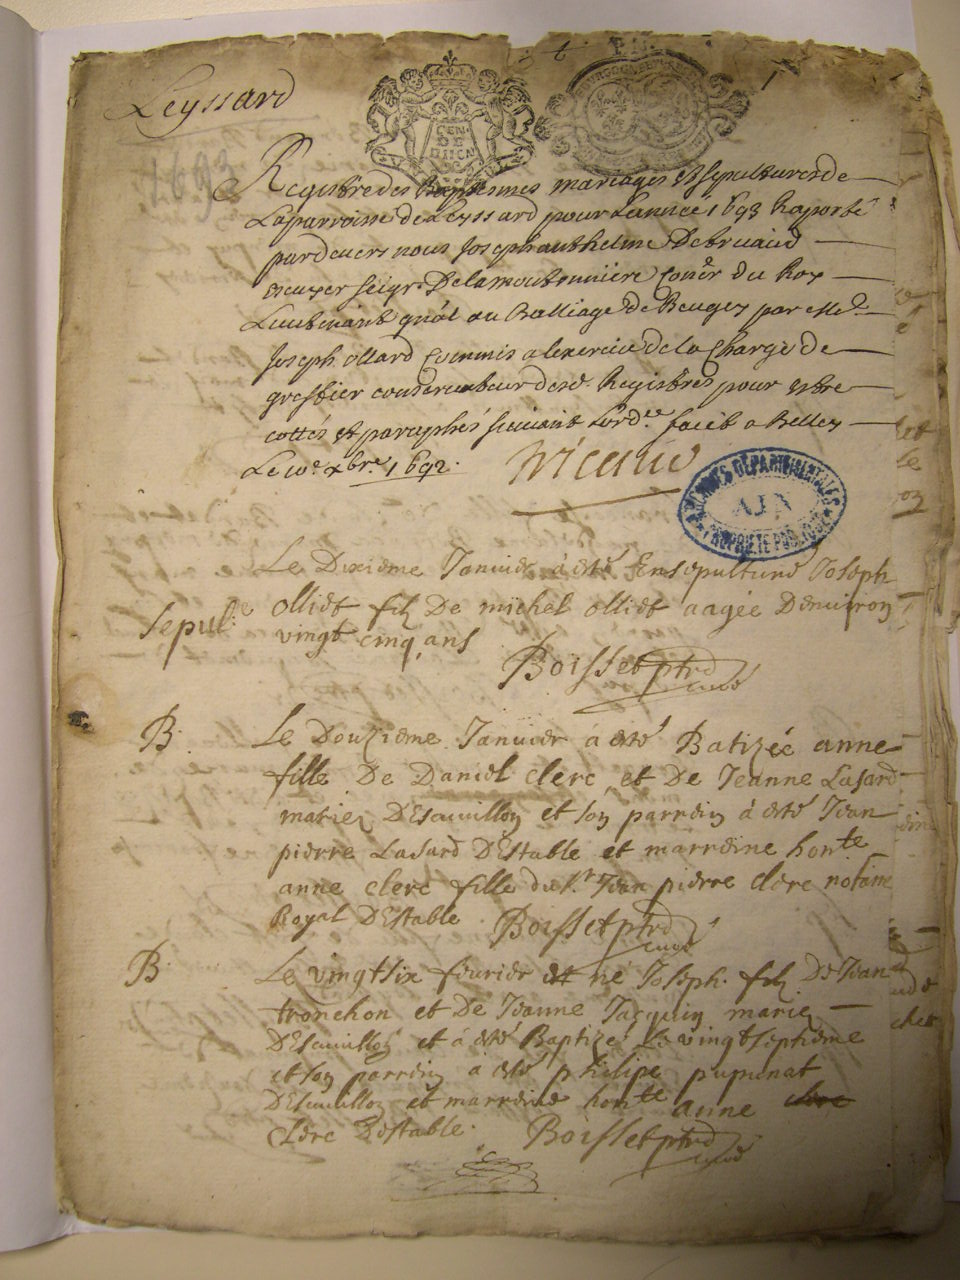 Leyssard
1693
Registre des Baptesmes mariages et sepultures de
La parroisse de Leyssard pour Lannee 1693 Raporté
pardevers nous Joseph anthelme Debruaud
escuyer seigr Delamoutonniere Coner du Roy
Lieutenant gnāl au Balliage de Beugey par
Joseph ollard Commis a lexercice de la Charge de
greffier conservateur desd. Registres pour estre
cottés et paraphés suivant Lordce faict a Belley
Le xbre 1692.
ARCHIVES DÉPARTIMENTALES
AIN
PROPRIÉTÉ PUBLIQUE
Le Dixieme Janvier à esté Ensepulturé Joseph
Sepulre olliet filz De michel olliet aagée Denviron
vingt cinq ans
Boisset
B. Le Douzieme Janvier à esté Batizée anne
fille De Daniel clerc et De Jeanne Lasard
mariez DEscuvillon et son parrein à esté Jean
pierre Lasard DEstable et marreine honte
anne clerc fille du sr Jean pierre clerc notaire
Royal DEstable Boisset
B. Le vingtsix fevrier est né Joseph filz De Jean
tronchon et De Jeanne Jacquin mariez
DEscuvillon et à esté Baptizé Le vingtseptieme
et son parrein à esté philipe pupunat
DEscuvillon et marreine honte anne clerc
clerc DEstable. Boisset